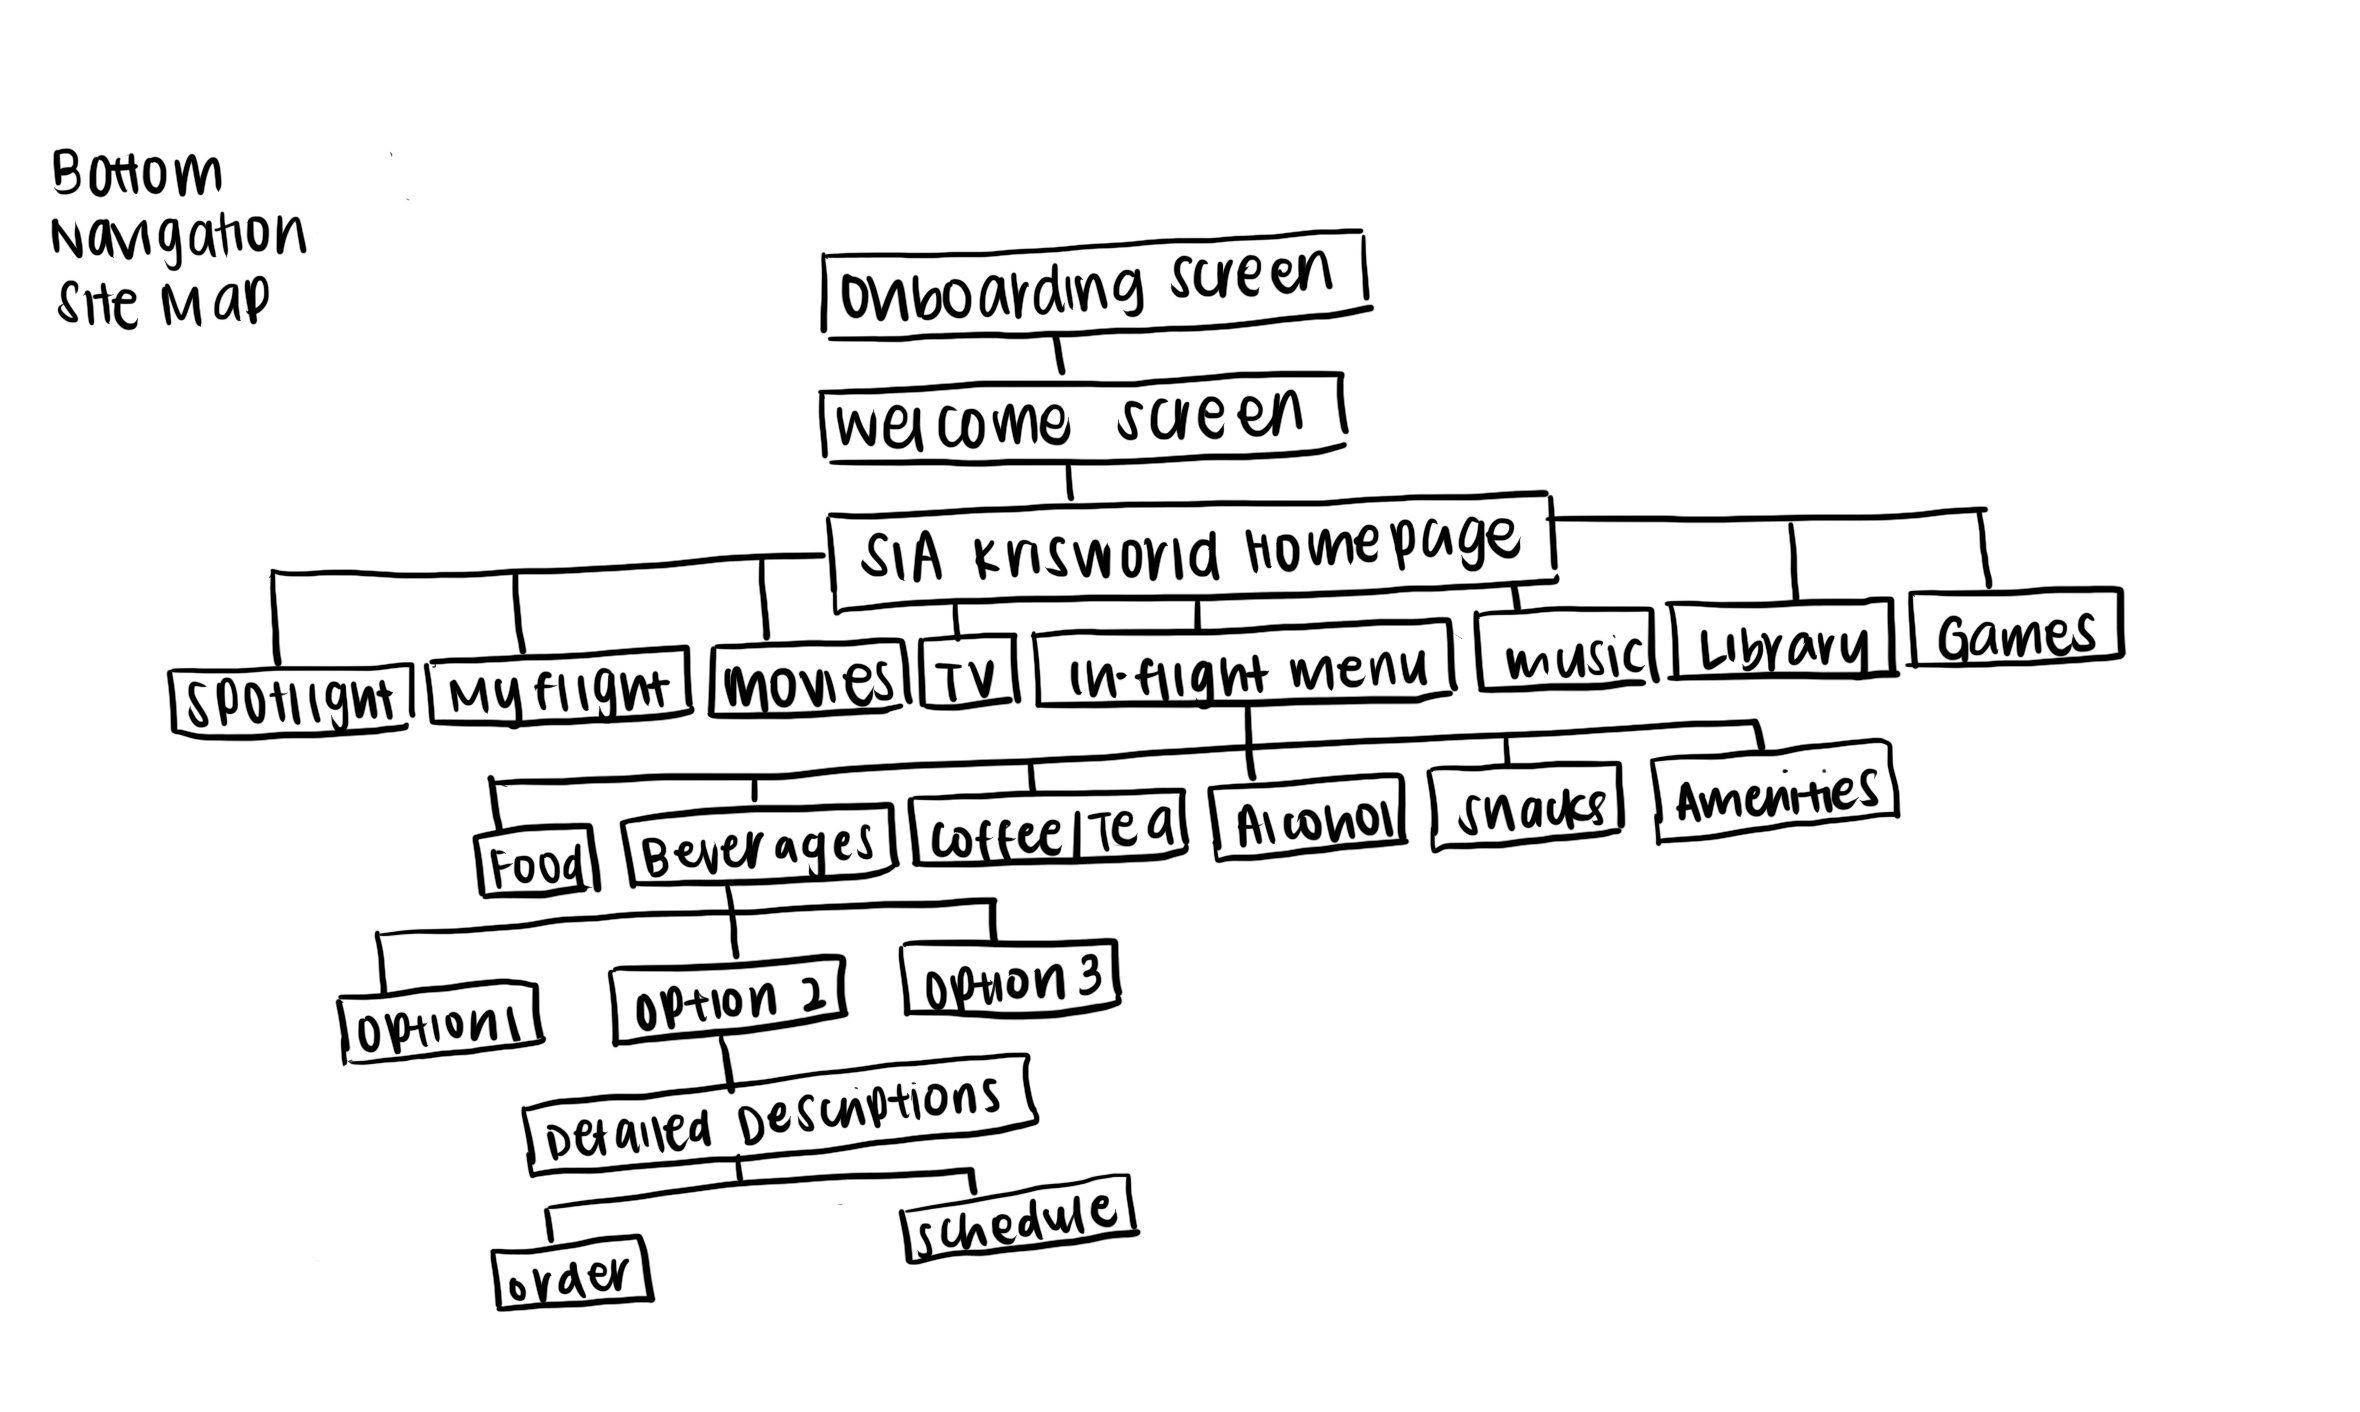 Bottom
Navigation
Site Map
Onboarding screen
Welcome screen
SIA Krisworld Homepage
Spotlight
My flight
Movies
TV
In-flight menu
music
Library
Games
Food
Beverages
Coffee|Tea
Alcohol
snacks
Amenities
Option 1
Option 2
Option 3
Detailed Descriptions
order
schedule